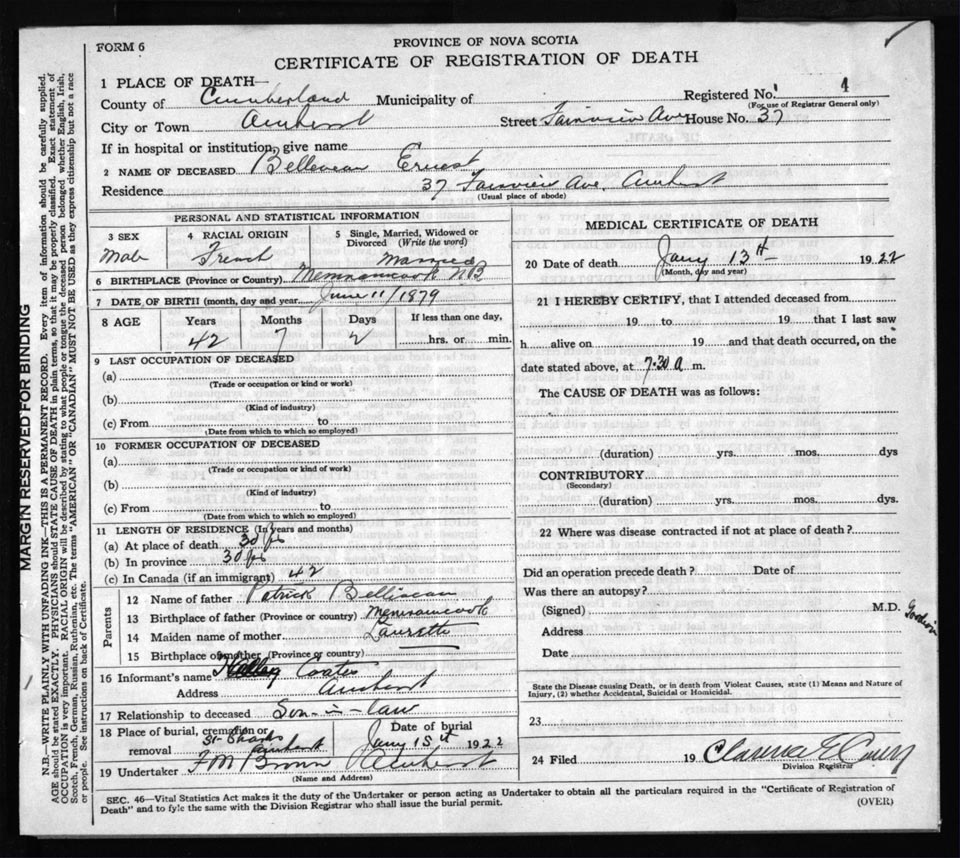 FORM 6
PROVINCE OF NOVA SCOTIA
CERTIFICATE OF REGISTRATION OF DEATH
1 PLACE OF DEATH—
County of Cumberland Municipality of Registered No. 4
(For use of Registrar General only)
City or Town Amherst Street Fairview Ave House No. 37
If in hospital or institution, give name
2 NAME OF DECEASED Belliveau Ernest
Residence 37 Fairview Ave, Amherst
(Usual place of abode)
PERSONAL AND STATISTICAL INFORMATION
3 SEX 4 RACIAL ORIGIN 5 Single, Married, Widowed or Divorced (Write the word)
Male French Married
6 BIRTHPLACE (Province or Country) Memramcook N.B
7 DATE OF BIRTH (month, day and year) June 11/1879
8 AGE Years Months Days If less than one day,
42 7 2 hrs. or min.
9 LAST OCCUPATION OF DECEASED
(a)
(Trade or occupation or kind or work)
(b)
(Kind of industry)
(c) From to
(Date from which to which so employed)
10 FORMER OCCUPATION OF DECEASED
(a)
(Trade or occupation or kind of work)
(b)
(Kind of industry)
(c) From to
(Date from which to which so employed)
11 LENGTH OF RESIDENCE (In years and months)
(a) At place of death 30 yrs
(b) In province 30 yrs
(c) In Canada (if an immigrant) 42
Parents
12 Name of father Patrick Belliveau
13 Birthplace of father (Province or country) Memramcook
14 Maiden name of mother Laurette
15 Birthplace of mother (Province or country)
16 Informant's name Coates
Address Amherst
17 Relationship to deceased Son-in-law
18 Place of burial, cremation or removal St Charles Amherst
Date of burial Jany 15th 1922
19 Undertaker F M Brown Amherst
(Name and Address)
MEDICAL CERTIFICATE OF DEATH
20 Date of death Jany 13th 1922
(Month, day and year)
21 I HEREBY CERTIFY, that I attended deceased from
19 to 19 that I last saw
h alive on 19 and that death occurred, on the
date stated above, at 7.30 a m.
The CAUSE OF DEATH was as follows:
(duration) yrs. mos. dys
CONTRIBUTORY
(Secondary)
(duration) yrs. mos. dys.
22 Where was disease contracted if not at place of death?
Did an operation precede death? Date of
Was there an autopsy?
(Signed) M.D.
Address
Date
State the Disease causing Death, or in death from Violent Causes, state (1) Means and Nature of
Injury, (2) whether Accidental, Suicidal or Homicidal.
23
24 Filed 19
Division Registrar
SEC. 46—Vital Statistics Act makes it the duty of the Undertaker or person acting as Undertaker to obtain all the particulars required in the "Certificate of Registration of
Death" and to fyle the same with the Division Registrar who shall issue the burial permit.
(OVER)
MARGIN RESERVED FOR BINDING
N.B.—WRITE PLAINLY WITH UNFADING INK—THIS IS A PERMANENT RECORD. Every item of information should be carefully supplied.
AGE should be stated EXACTLY. PHYSICIANS should STATE CAUSE OF DEATH in plain terms, so that it may be properly classified. Exact statement of
OCCUPATION is very important. RACIAL ORIGIN will be described by stating to what people or tongue the deceased person belonged whether English, Irish,
Scotch, French, German, Russian, Ruthenian, etc. The terms "AMERICAN" OR "CANADIAN" MUST NOT BE USED as they express citizenship but not a race
or people. See instructions on back of Certificate.